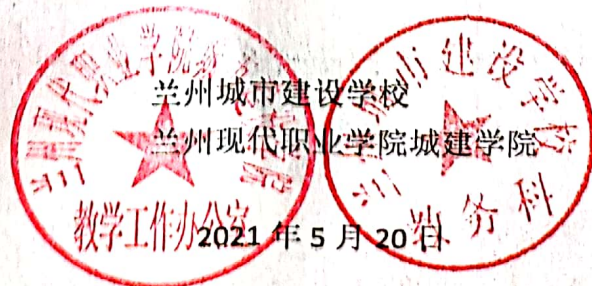 兰州城市建设学校
兰州现代职业学院城建学院
2021年5月20日
兰州现代职业学院城建学院
教学工作办公室
兰州城市建设学校
教务科